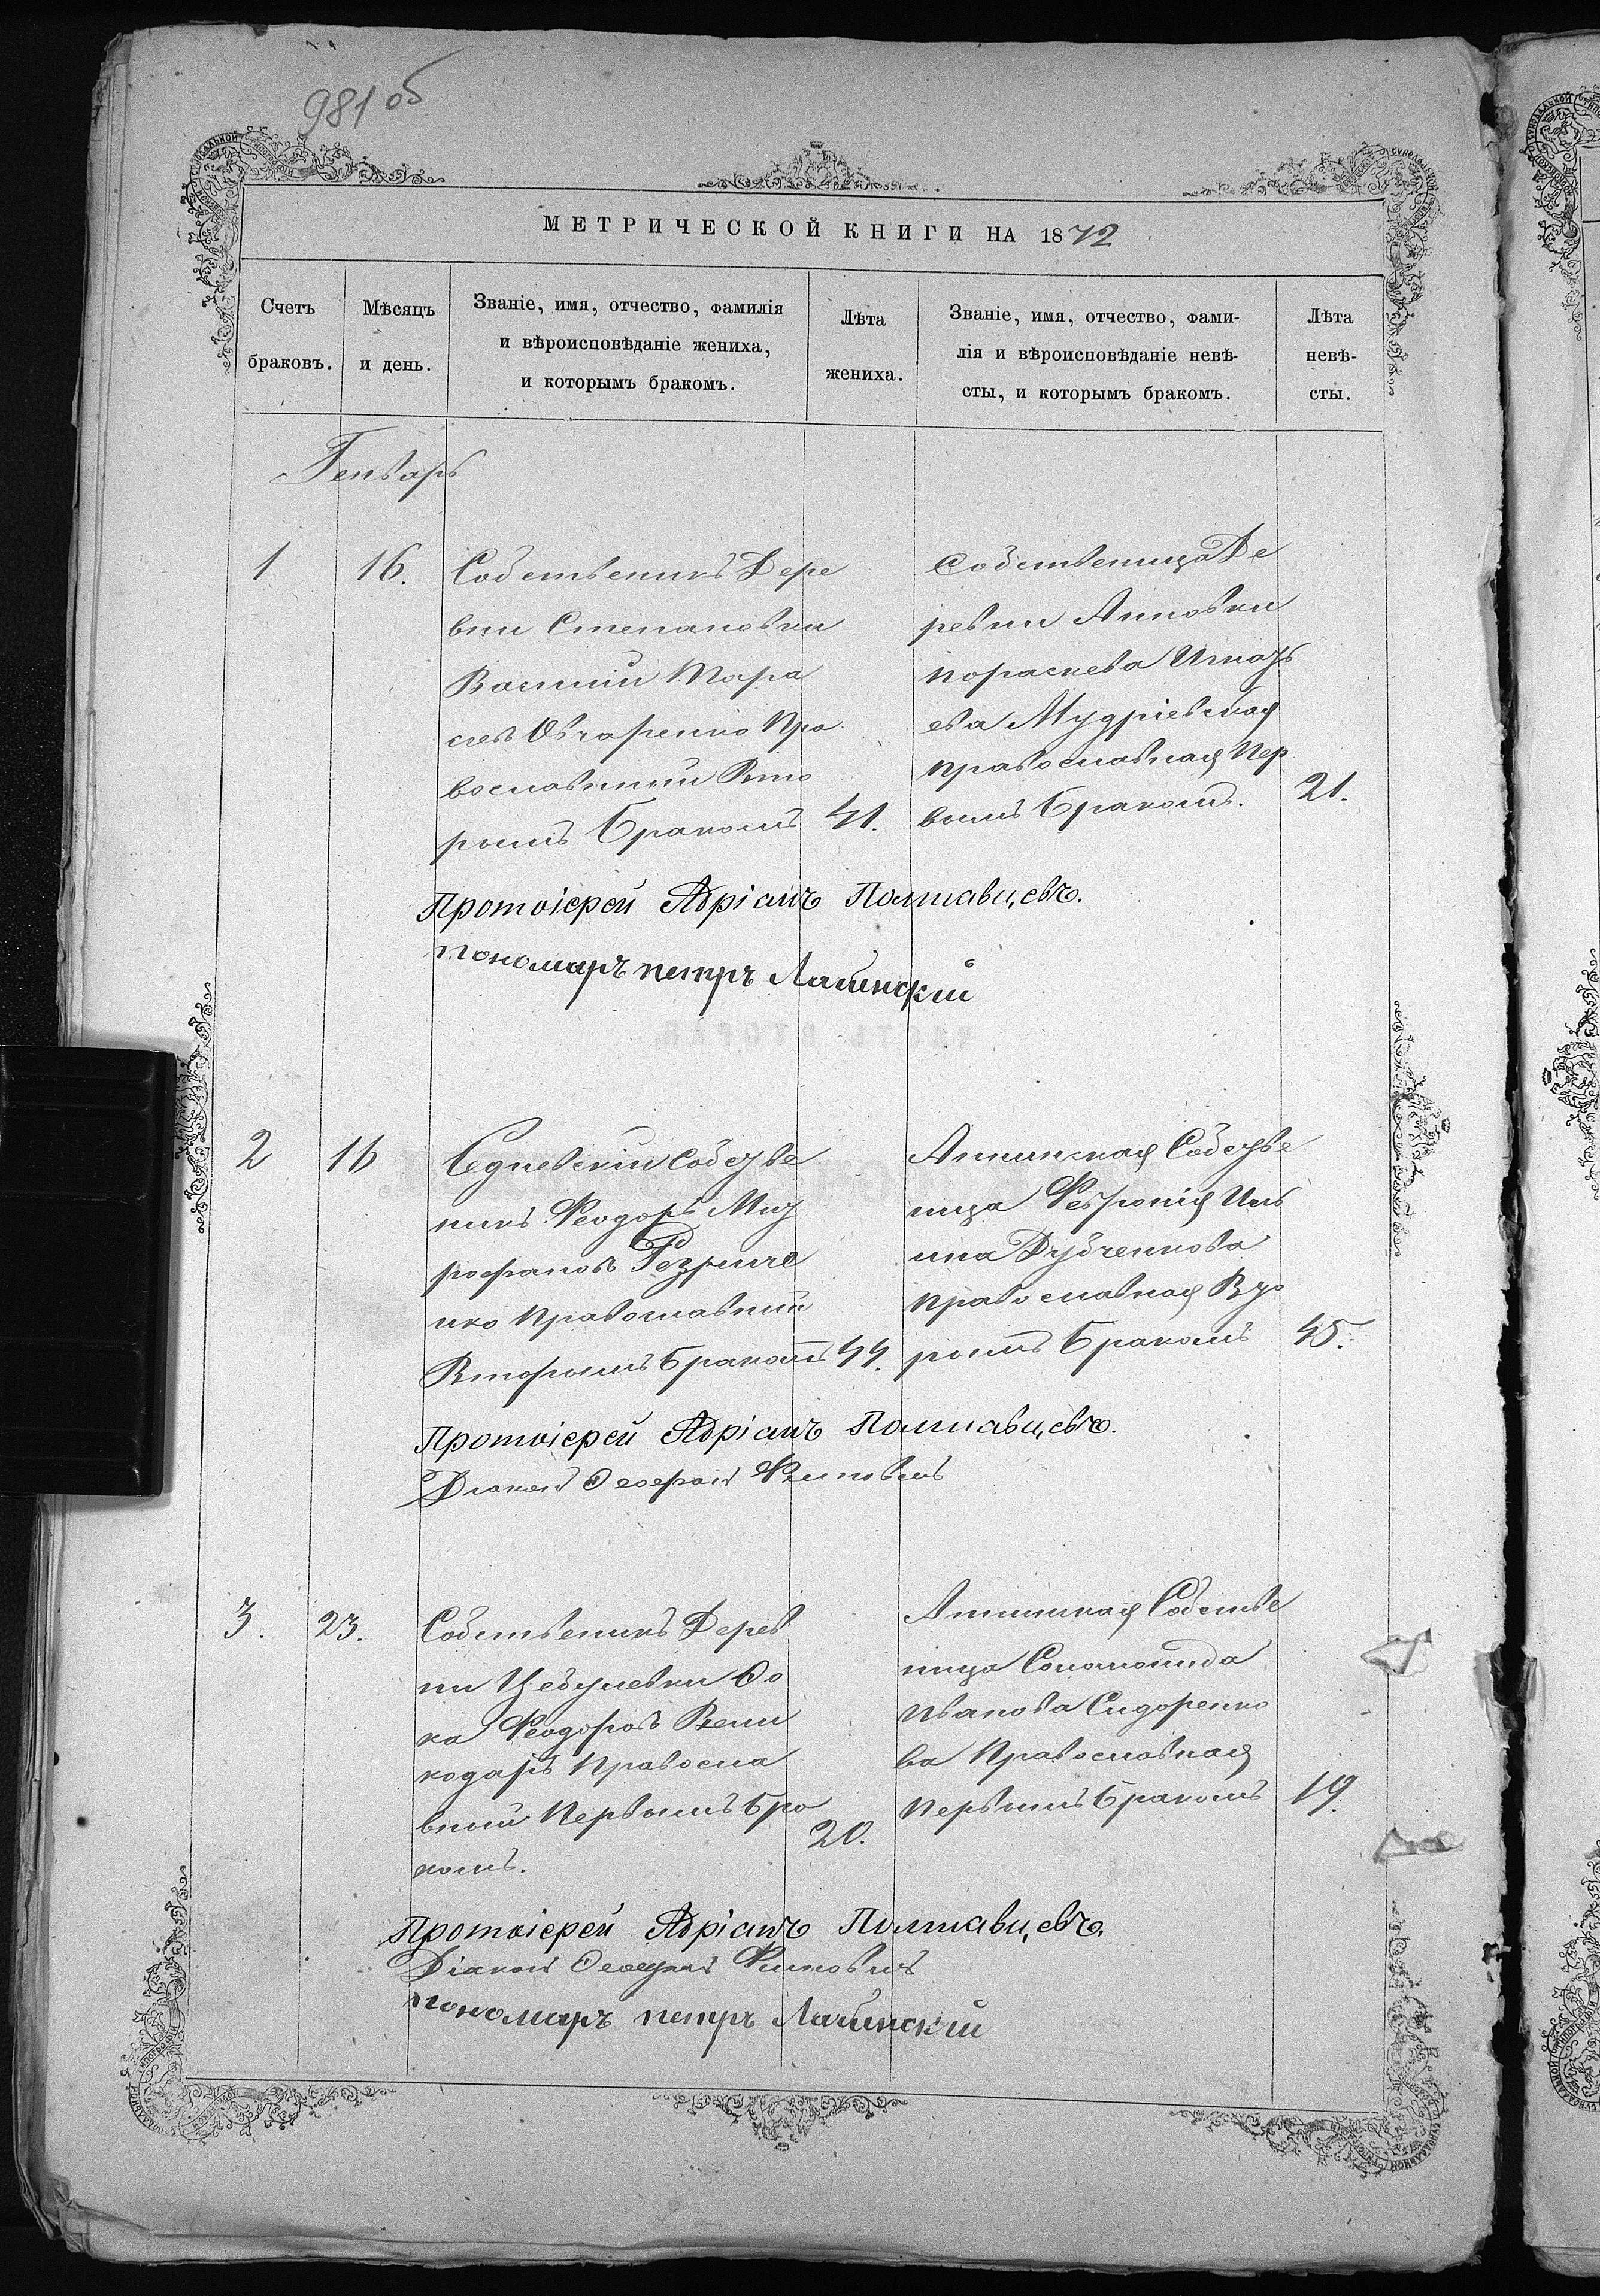 981 об
МЕТРИЧЕСКОЙ КНИГИ НА 1872
Счетъ браковъ.
Мѣсяцъ и день.
Званіе, имя, отчество, фамилія
и вѣроисповѣданіе жениха,
и которымъ бракомъ.
Лѣта жениха.
Званіе, имя, отчество, фами-
лія и вѣроисповѣданіе невѣ-
сты, и которымъ бракомъ.
Лѣта
невѣ-
сты.
Генварь
1
16.
Собственикъ Дере
вни Степановки
Василий Тара
сіевъ Овчаренко Пра
вославный Вто
рымъ Бракомъ
41.
Собственица Де
ревни Анновки
Пораскева Игнать
ева Мудріевская
Православная Пер
вымъ Бракомъ.
21.
Протоіерей Адріанъ Полтавцевъ.
Пономаръ петръ
2
16
Седневскій Собстве
никъ Феодоръ Мит
рофановъ
нко Православный
Вторымъ Бракомъ
44.
Аннинская Собстве
ница Февронія Иль
ина Дубченкова
Православная Вто
рымъ Бракомъ
45.
Протоіерей Адріанъ Полтавцевъ.
Діакон
3.
23.
Собственикъ Дерев
ни Цебулевки Фо
ка Феодоровъ Вели
кодаръ Правосла
вный Первымъ Бра
комъ.
20.
Аннинская Собстве
ница Соломонида
Иванова Сидоренко
ва Православная
Первымъ Бракомъ
19.
Протоіерей Адріанъ Полтавцевъ.
Діакон
Пономаръ петръ